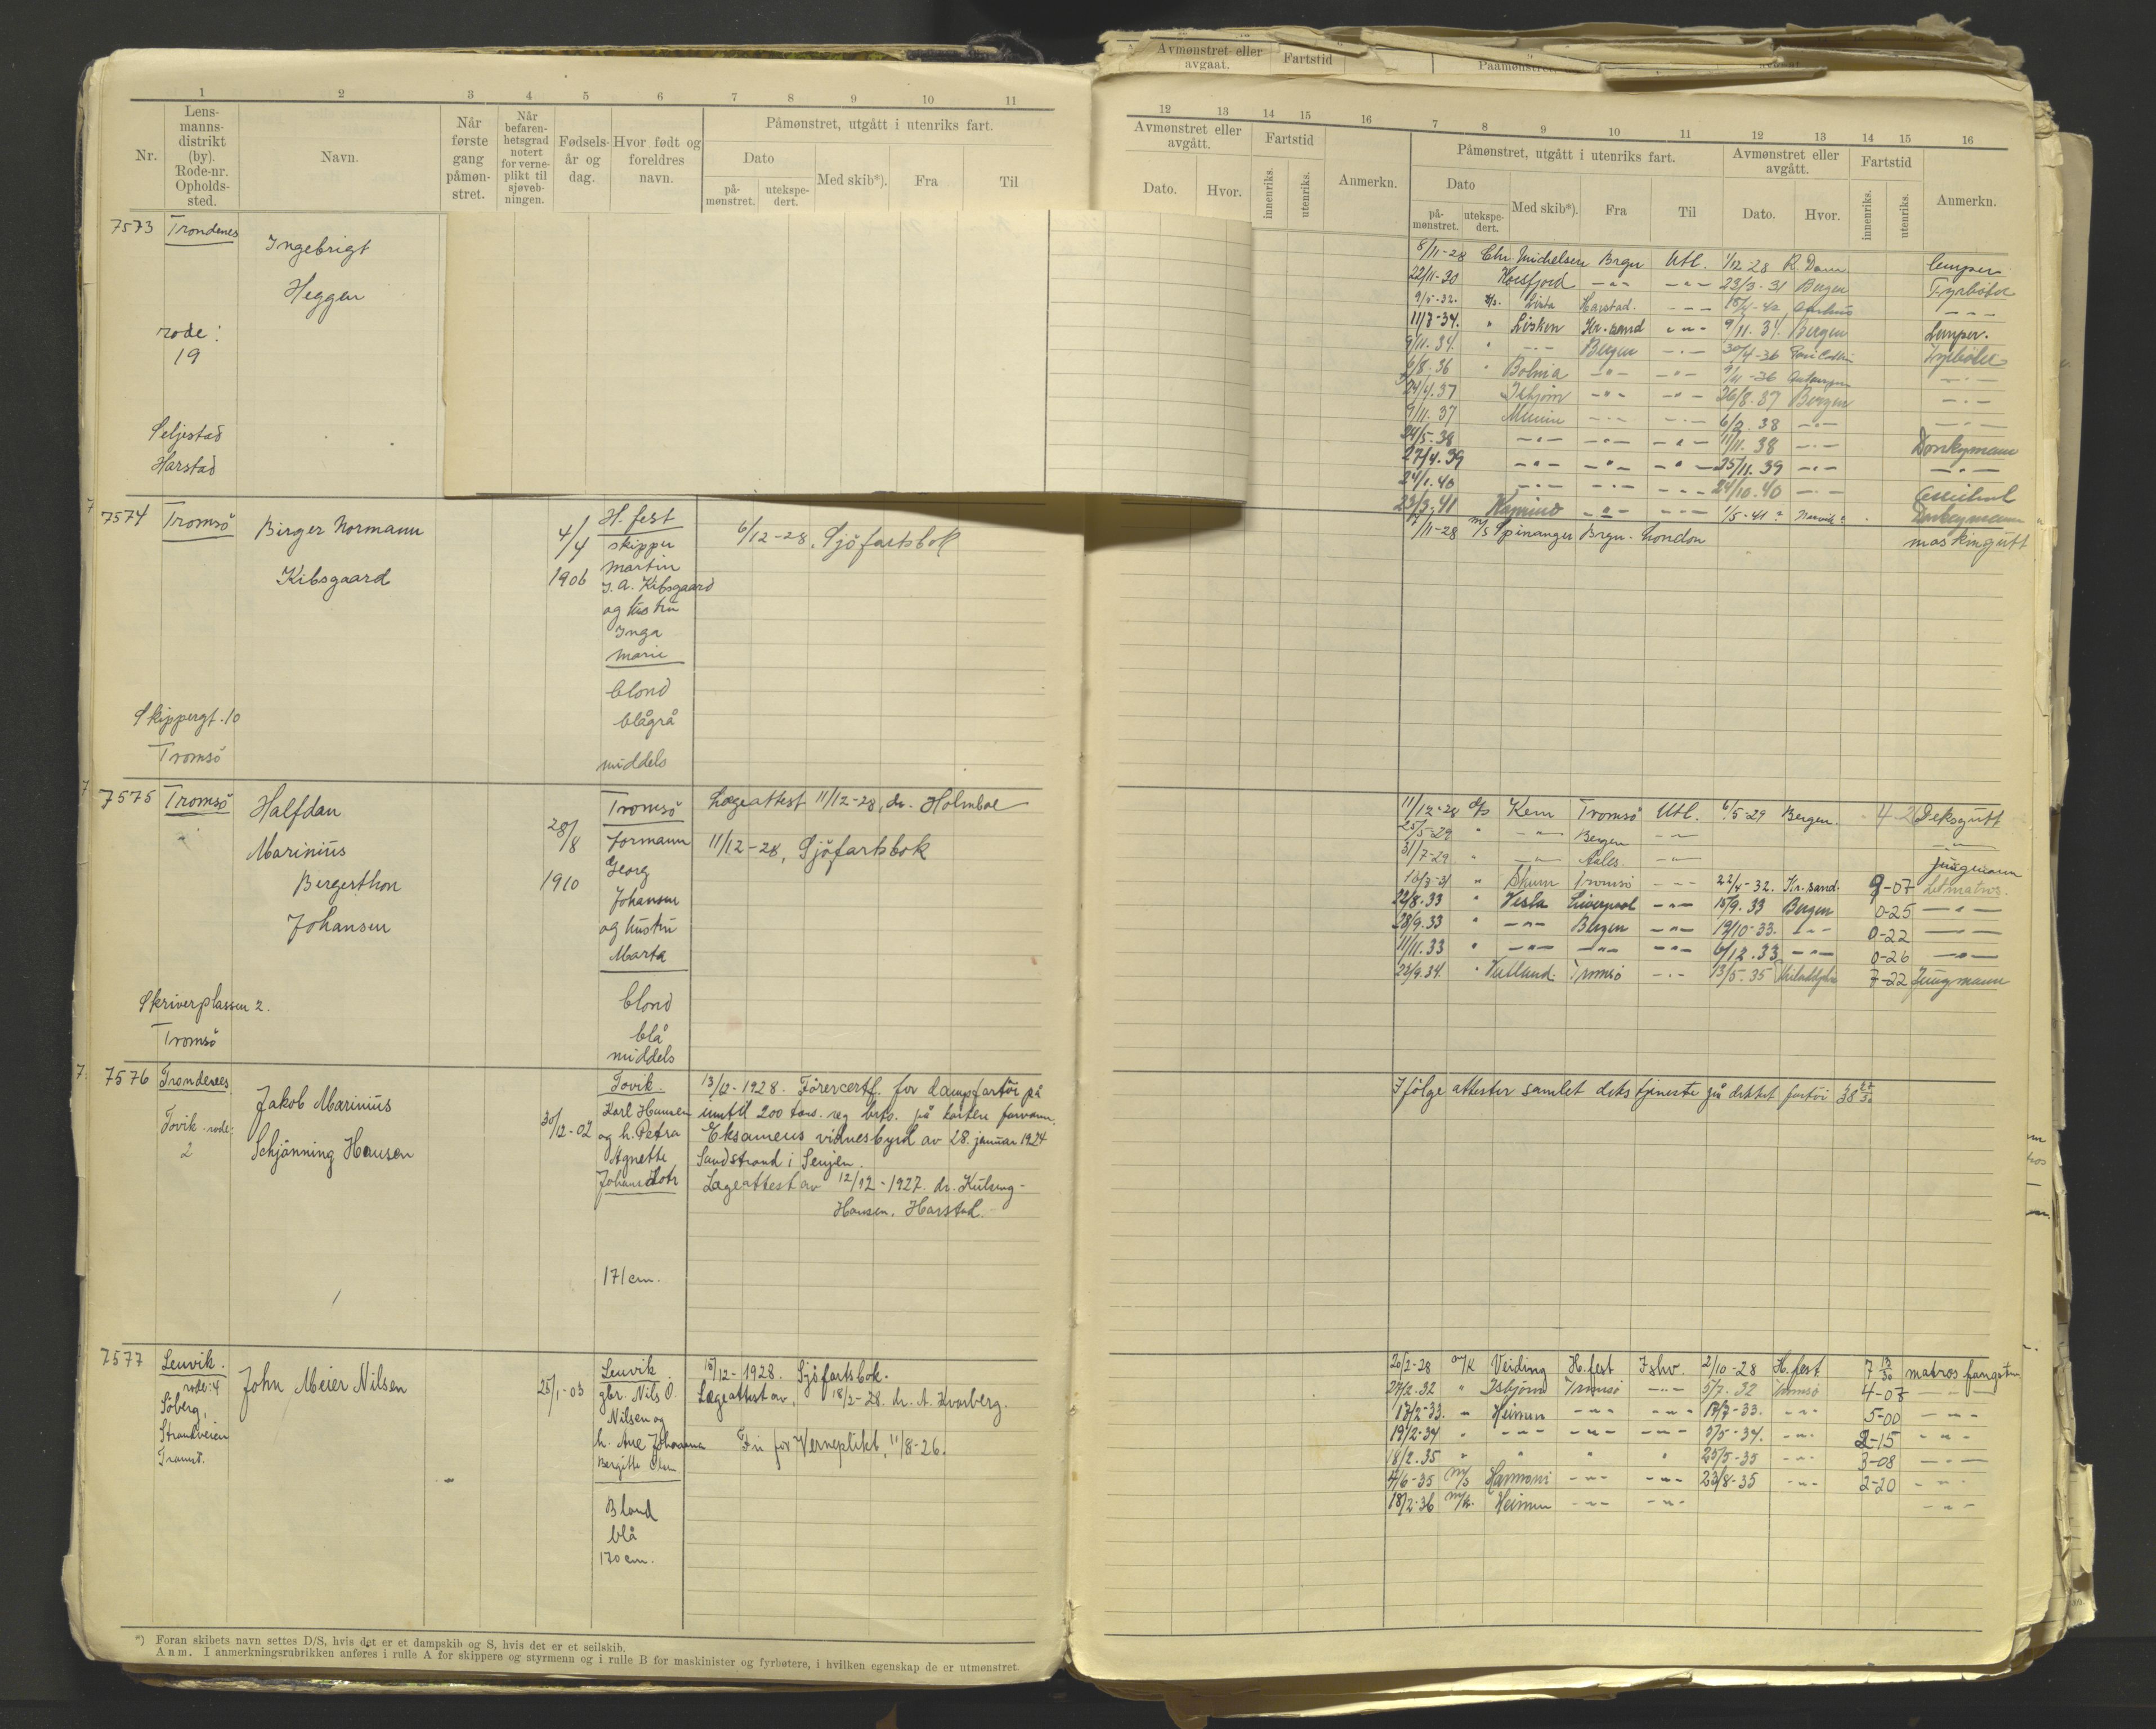 1 2 3 4 5 6 7 8 9 10 11
Nr.
Lens-
manns-
distrikt
(by).
Rode-nr.
Opholds-
sted.
Navn.
Når
første
gang
påmøn-
stret.
Når
befaren-
hetsgrad
notert
for verne-
plikt til
sjøveb-
ningen.
Fødsels-
år og
dag.
Hvor født og
foreldres
navn.
Påmønstret, utgått i utenriks fart.
Dato
på-
mønstret.
utekspe-
dert.
Med skib*).
Fra
Til
7573 Trondenes
Ingebrigt
Heggen
rode:
19
Seljestad
Harstad
7574 Tromsö
Birger Normann
Kibsgaard
4/4
1906
H.fest
skipper
Martin
J. A. Kibsgaard
og hustru
Inga
Marie
blond
blågrå
middels
6/12-28, Sjöfartsbok
Skippergt. 10
Tromsö
7575 Tromsö
Halfdan
Marinius
Bergersthon
Johansen
28/8
1910
Tromsö
Formann
Georg
Johansen
og hustru
Marta
blond
blå
middels
Lægeattest 11/12-28, dr. Holmboe
11/12-28, Sjöfartsbok
Skriverplassen 2.
Tromsö
7576 Trondenes
Tovik rode:
2
Jakob Marinius
Schjönning Hansen
30/12-02
Tovik.
Karl Hansen
og h. Petra
Agnette
171 cm.
13/12-1928. Förercertf. for dampfartöi på
inntil 200 tons. reg. brto. på kortere farvann.
Eksamens vidnesbyrd av 28. januar 1924
Sandstrand i Senjen.
Lægeattest av 12/12-1927. dr.
Hansen, Harstad.
7577 Lenvik.
rode: 4
Söberg,
Strandveien
Tromsö.
John Meier Nilsen
25/1-03
Lenvik.
gbr. Nils O.
Nilsen og
h. Ane Johanna
Bergitte
Blond
blå
170 cm.
15/12-1928. Sjöfartsbok.
Lægeattest av, 18/2-28. dr. A. Kvarberg.
Fri for Verneplikt, 11/8-26.
*) Foran skibets navn settes D/S, hvis det er et dampskib og S, hvis det er et seilskib.
Anm. I anmerkningsrubrikken anføres i rulle A for skippere og styrmenn og i rulle B for maskinister og fyrbøtere, i hvilken egenskap de er utmønstret.
Avmønstret eller
avgaat.
Fartstid
Paamønstret,
12 13 14 15 16 7 8 9 10 11 12 13 14 15 16
Avmønstret eller
avgått.
Dato.
Hvor.
Fartstid
innenriks.
utenriks.
Anmerkn.
Påmønstret, utgått i utenriks fart.
Dato
på-
mønstret.
utekspe-
dert.
Med skib*).
Fra
Til
Avmønstret eller
avgått.
Dato.
Hvor.
Fartstid
innenriks.
utenriks.
Anmerkn.
8/11-28 Chr. Michelsen Brgn Utl. 1/12-28 R.Dam lemper
22/11-30 -"- -"- 23/3-31 Bergen Fyrböter
9/5-32. Lista Harstad. -"-
11/7-34. " Lisken Kr.sand -"- 9/11.34. Bergen Lemper.
9/11.34. " -"- Bergen -"- 30/4-36 Fyrböter
6/8.36 " Bolma -"- -"- -"-
24/4.37 Isbjörn -"- -"- 26/8.37 Bergen -"-
9/11.37 Munin -"- -"- 6/2.38 -"- -"-
24/5.38 -"- -"- -"- 11/11.38 -"- Donkeymann
27/4.39 -"- -"- -"- 25/11.39 -"- -"-
24/1.40 -"- -"- -"- 24/10.40 -"-
23/3.41 -"- -"- 1/5-41? Narvik? Donkeymann
/11-28 m/s Spinanger Brgn. London maskingutt
11/12-28 d/s Kem Tromsö Utl. 6/5-29 Bergen. 4-2 Deksgutt
25/5-29 " -"- Bergen -"- -"-
31/7-29 " -"- Aales. -"- jungmann
16/3-31 " Skum Tromsö -"- 22/4-32. Kr.sand. 9-07 Letmatros.
22/8.33 " Vesla Liverpool -"- 15/9.33 Bergen 0-25 -"-
28/9.33 " -"- Bergen -"- 19/10-33. -"- 0-22 -"-
11/11.33 " -"- -"- -"- 6/12.33 -"- 0-26 -"-
23/9.34 " Tromsö -"- 13/5.35 Philadelphia 7-22 Jungmann
Ifölge attester samlet dekstjeneste på dekket fartöi 38 27/30
20/2-28 m/k Veiding H.fest Ishv. 2/10-28 H.fest 7 13/30 matros fangstm
27/2.32 " Isbjörn Tromsö -"- 5/7.32 Tromsö 4-07 -"-
17/2-33. " Heimen -"- -"- 17/7-33. -"- 5-00 -"-
19/2-34 " -"- -"- -"- 3/5-34. -"- 2-15 -"-
18/2.35 " " " " 25/5-35 -"- 3-08 -"-
4/6-35 m/s Harmoni -"- -"- 23/8-35 -"- 2-20 -"-
18/2-36 m/k. Heimen -"- -"- -"-